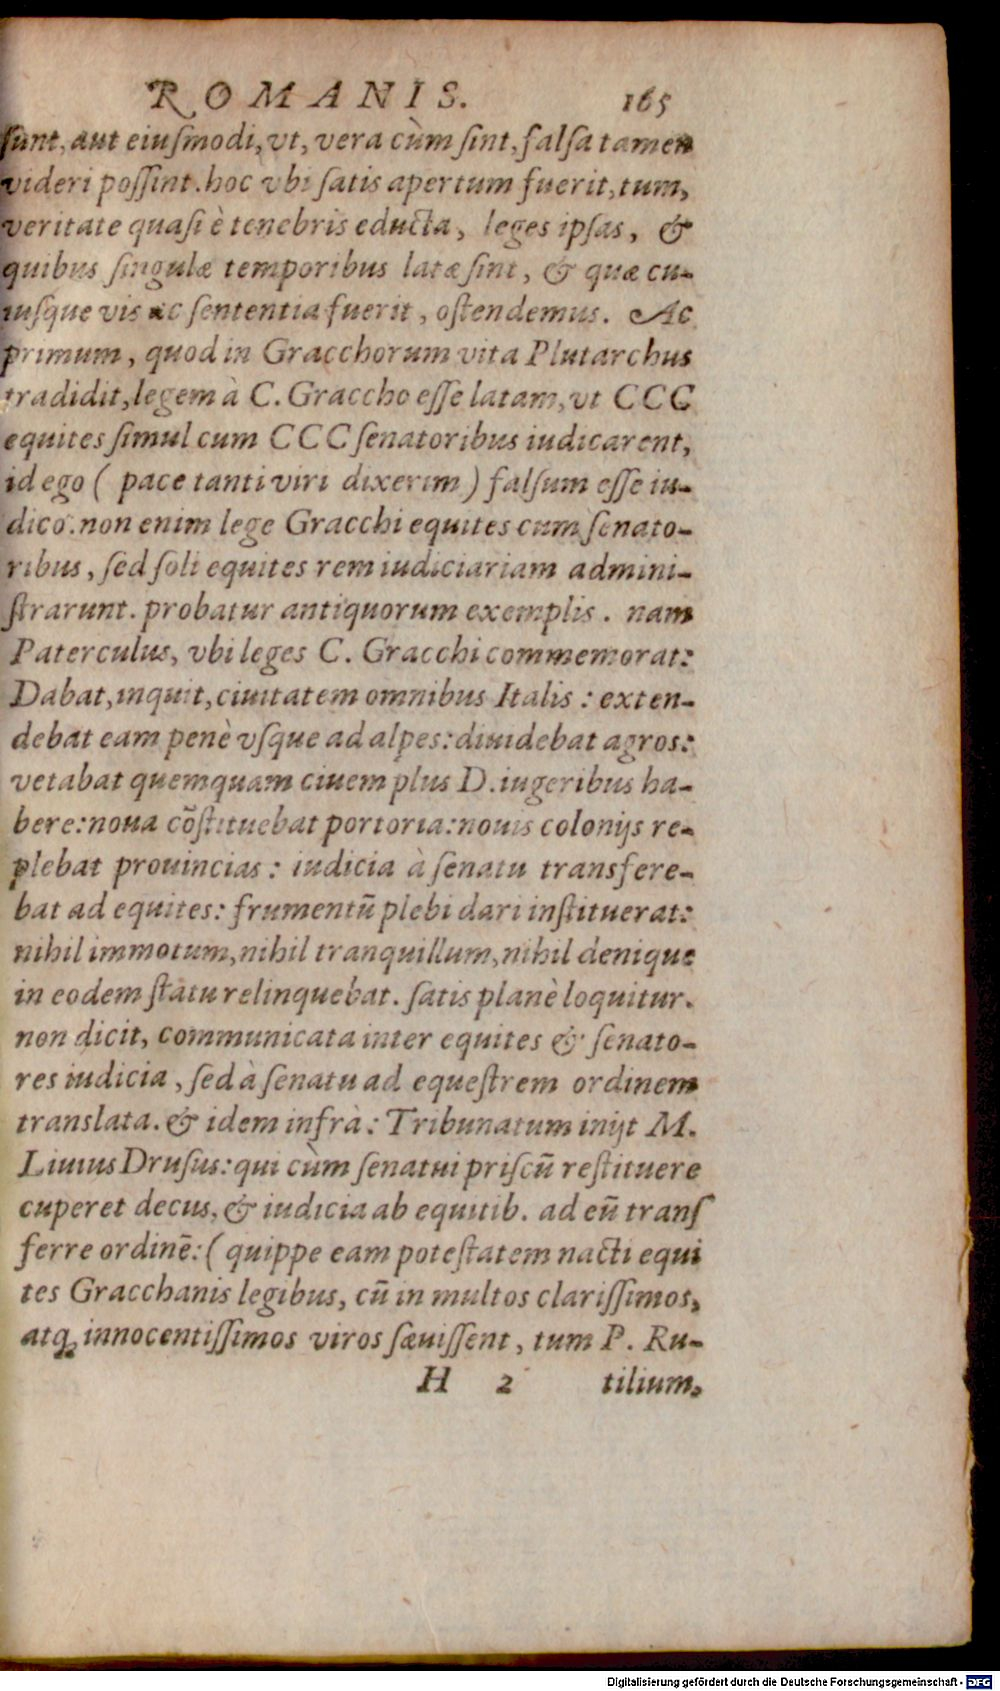 ROMANIS. 165
sunt, aut eiusmodi, vt, vera cùm sint, falsa tamen
videri possint. hoc vbi satis apertum fuerit, tum,
veritate quasi è tenebris educta, leges ipsas, &
quibus singulæ temporibus latæ sint, & quæ cu-
iusque vis ac sententia fuerit, ostendemus. Ac
primum, quod in Gracchorum vita Plutarchus
tradidit, legem à C. Graccho esse latam, vt CCC
equites simul cum CCC senatoribus iudicarent,
id ego ( pace tanti viri dixerim ) falsum esse iu-
dico. non enim lege Gracchi equites cum senato-
ribus, sed soli equites rem iudiciariam admini-
strarunt. probatur antiquorum exemplis. nam
Paterculus, vbi leges C. Gracchi commemorat:
Dabat, inquit, ciuitatem omnibus Italis: exten-
debat eam penè vsque ad alpes: diuidebat agros:
vetabat quemquam ciuem plus D. iugeribus ha-
bere: noua cõstituebat portoria: nouis colonijs re-
plebat prouincias: iudicia à senatu transfere-
bat ad equites: frumentũ plebi dari instituerat:
nihil immotum, nihil tranquillum, nihil denique
in eodem statu relinquebat. satis planè loquitur.
non dicit, communicata inter equites & senato-
res iudicia, sed à senatu ad equestrem ordinem
translata. & idem infrà: Tribunatum inijt M.
Liuius Drusus: qui cùm senatui priscũ restituere
cuperet decus, & iudicia ab equitib. ad eũ trans
ferre ordinẽ: ( quippe eam potestatem nacti equi
tes Gracchanis legibus, cũ in multos clarissimos,
atq; innocentissimos viros sæuissent, tum P. Ru-
H 2 tilium,
Digitalisierung gefördert durch die Deutsche Forschungsgemeinschaft - DFG